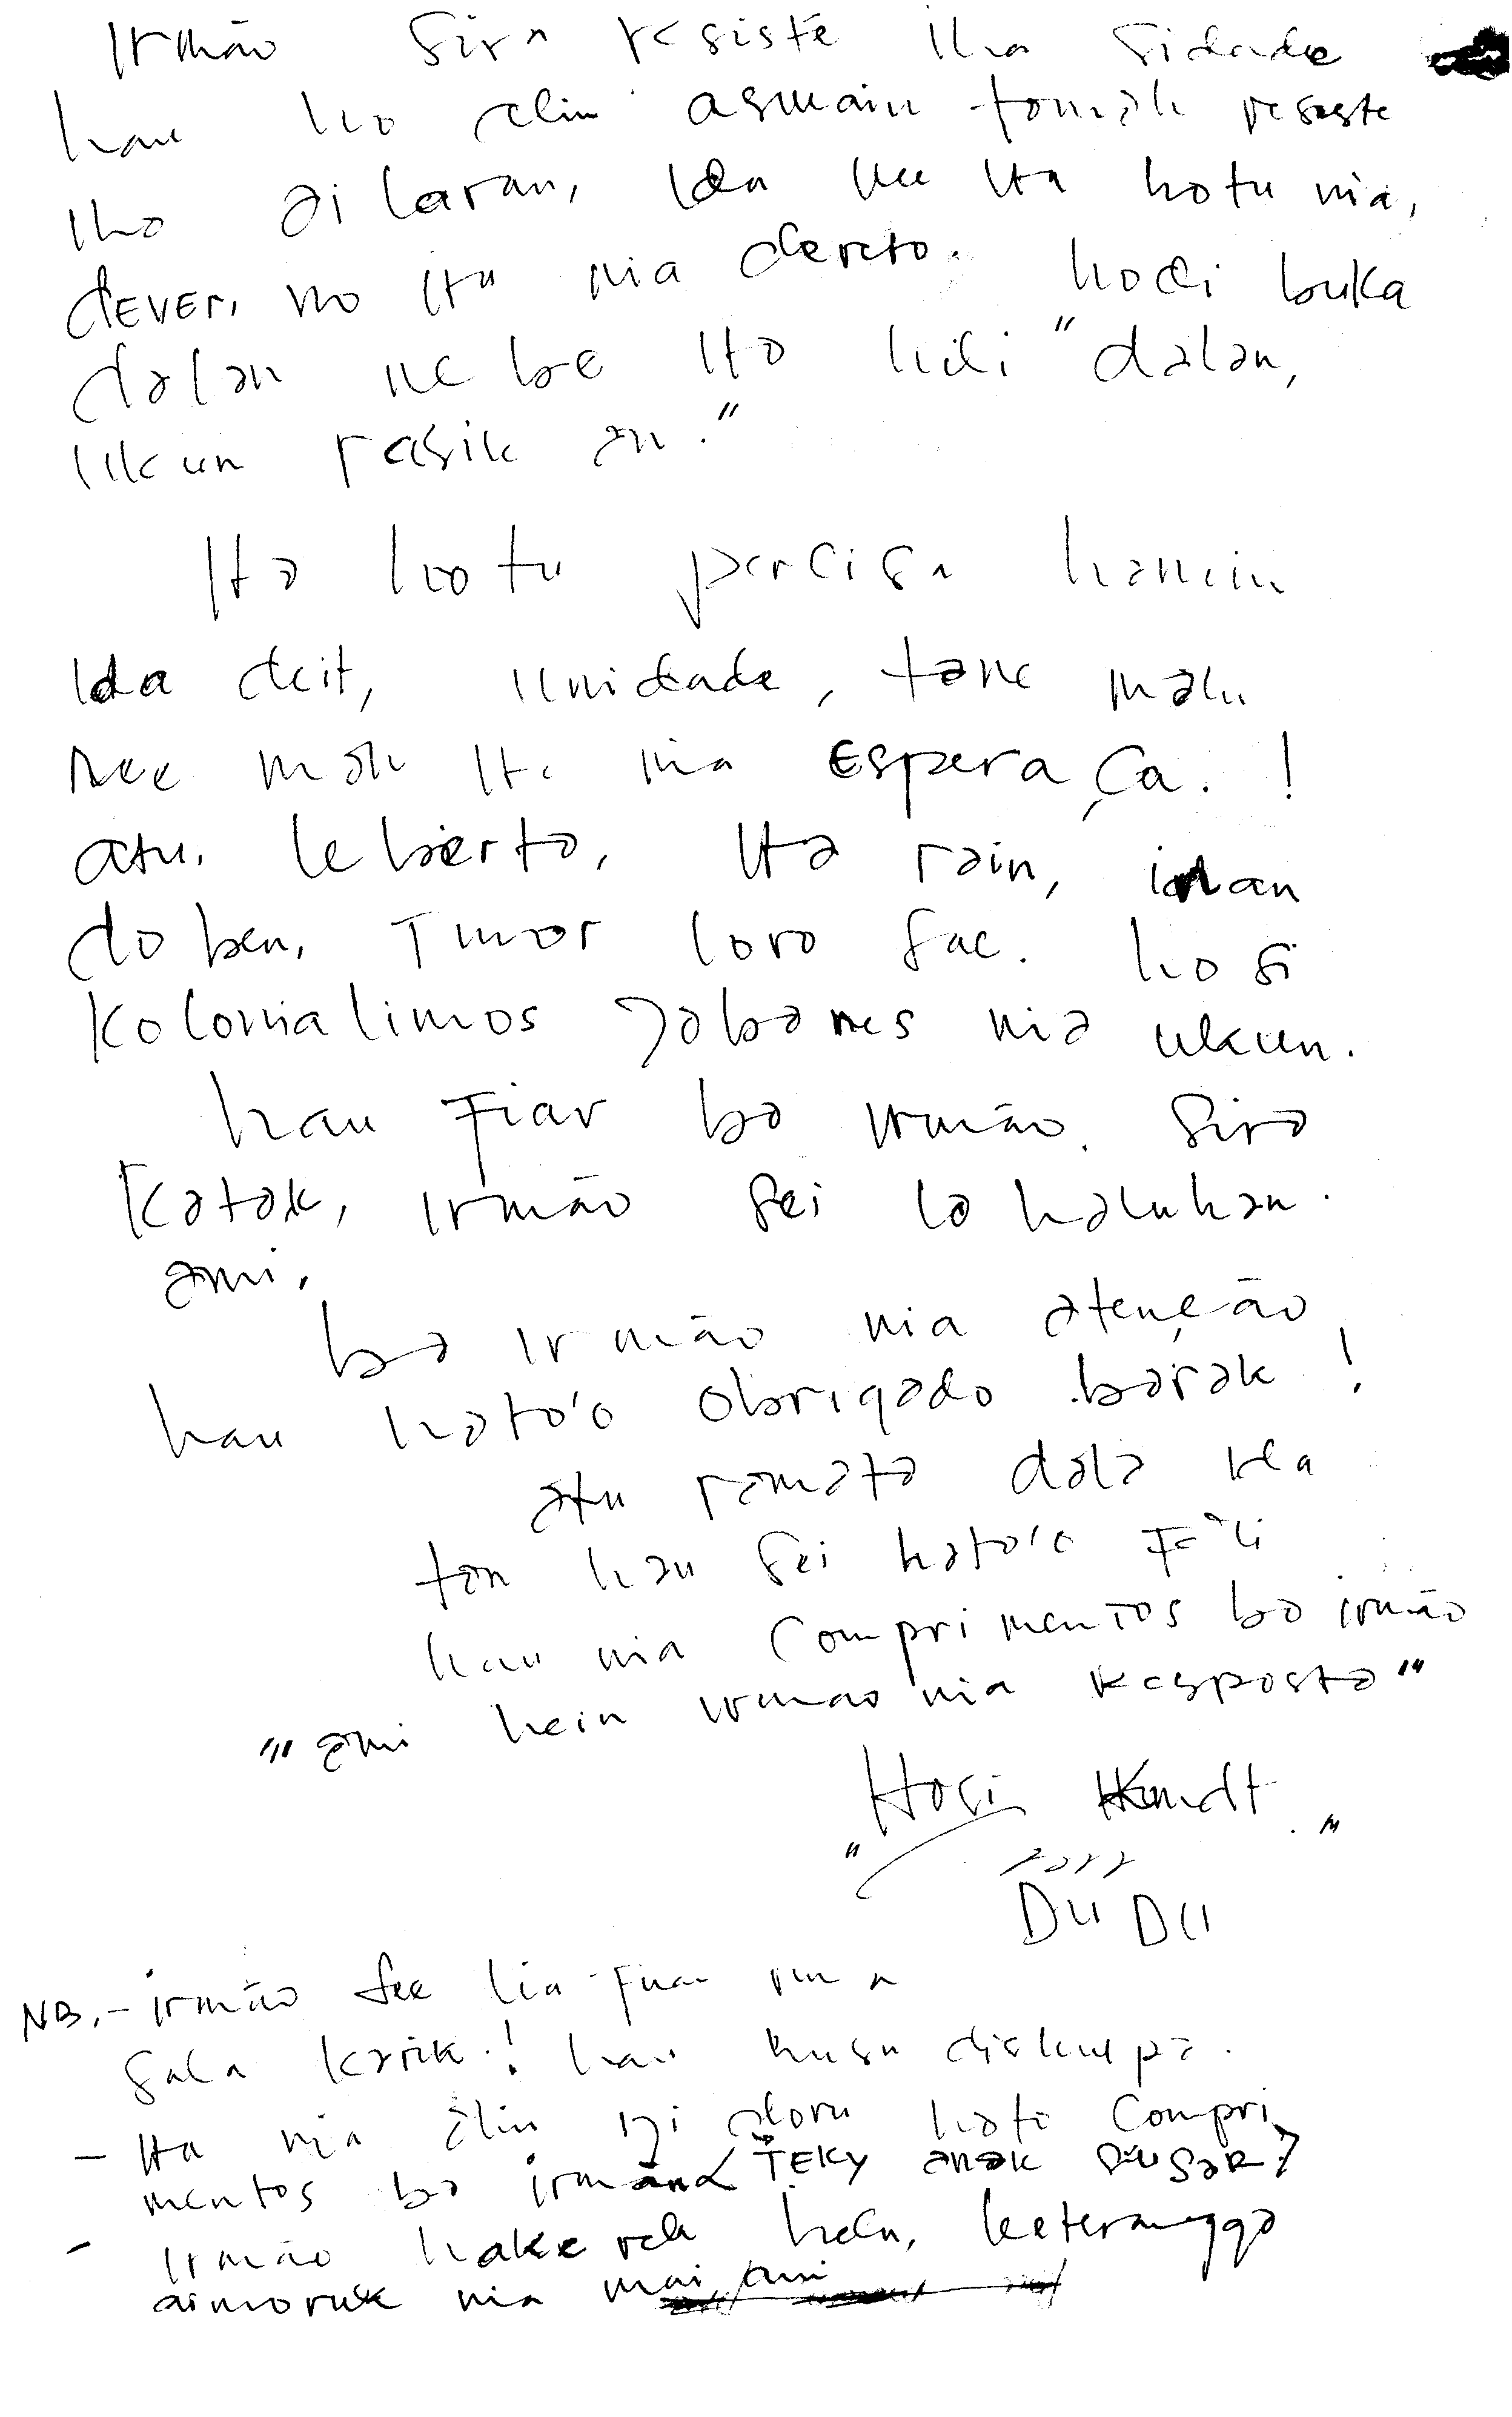 Irmão sira resiste iha sidade
hau ho alin asuwain tomak resiste
iha ai laran, Ida nee ita hotu nia,
dever, no ita nia dereto. hodi buka
dalan ne be ita hili "dalan,
ukun rasik an."
Ita hotu percisa hanein
Ida deit, unidade, tane malu
nee mak ita nia esperaça. !
atu. leberto, ita rain, inan
doben, Timor loro sae. hosi
Kolonialimos Jabanes nia ukun.
hau fiar ba irmão. sira
Katak, irmão sei la haluhan.
ami,
ba irmão nia atenção
hau hato'o obrigado barak !
atu ramata dala
tan hau sei hato'o fali
hau nia comprimentos ba irmão
"' ami hein irmao nia resposta "'
" Hosi "
DU DU
NB, - irmão see lia fuan ruma
sala karik.! hau husu diskulpa.
- Ita nia alin hato compri
mentos ba irmão TEKY anak SUSAR?
- irmão hakerek hela, keterangga
aimoruk nia mai ami